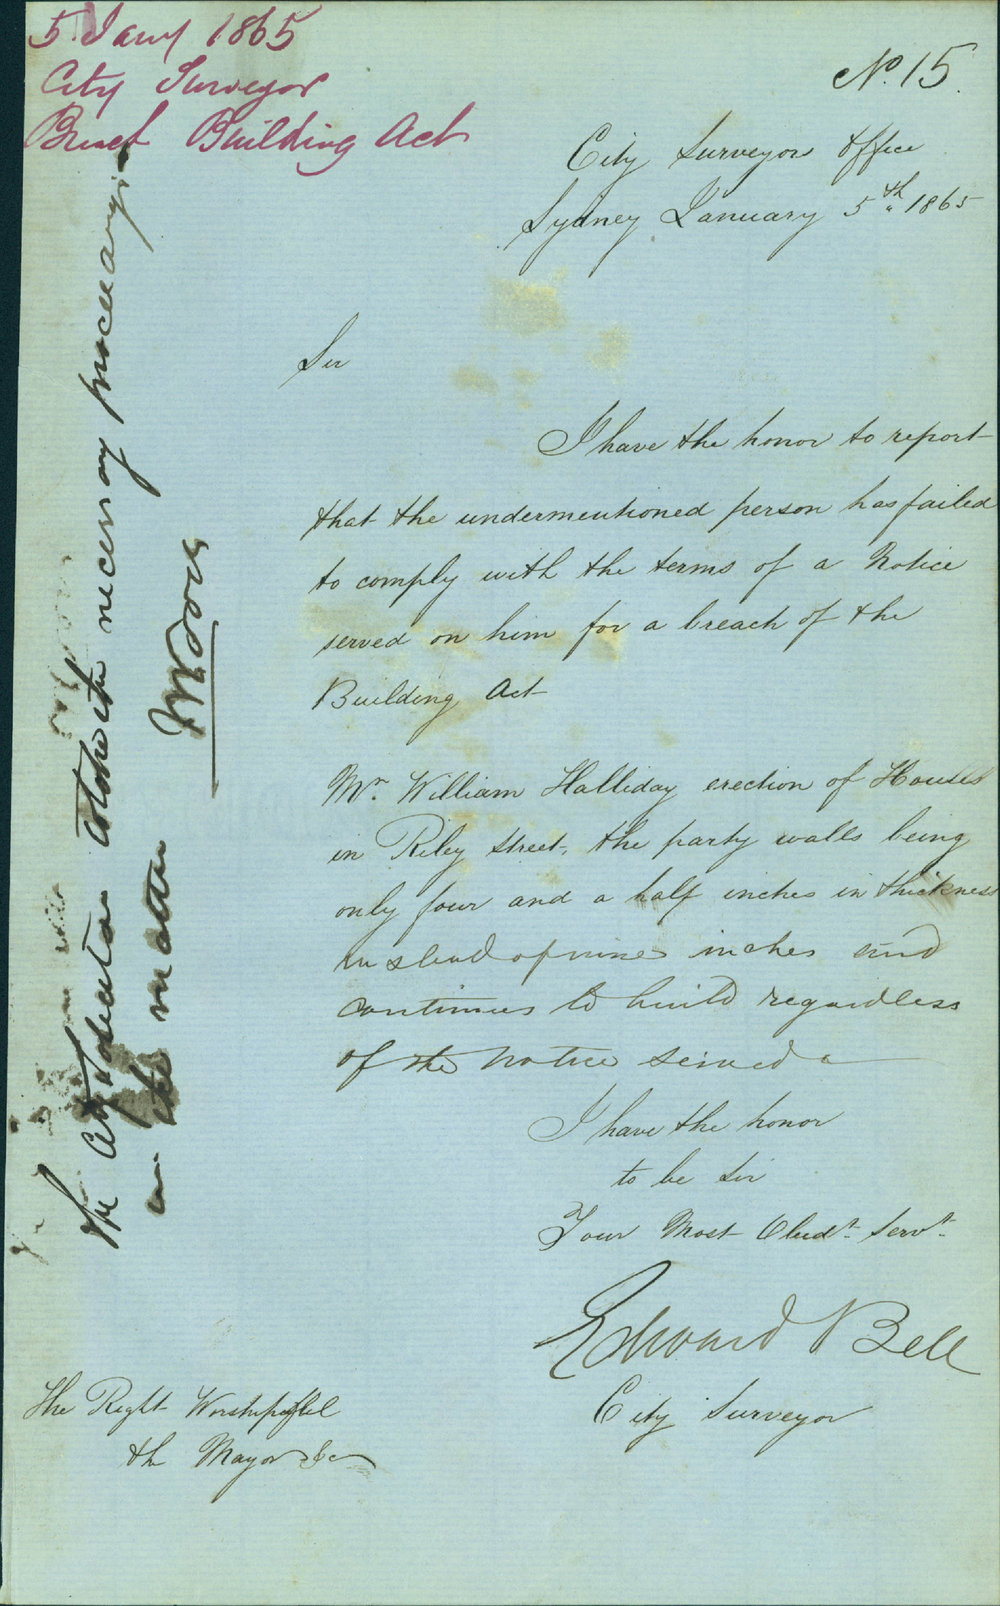 5 Jany 1865
City Surveyor
Breach Building Act
No. 15.
City Surveyors Office
Sydney January 5th 1865
Sir
I have the honor to report
that the undermentioned person has failed
to comply with the terms of a Notice
served on him for a breach of the
Building Act
Mr. William Halliday erection of Houses
in Riley Street, the party walls being
only four and a half inches in thickness
instead of nine inches and
continues to build regardless
of the notice served
I have the honor
to be Sir
Your Most Obedt. Servt.
Edward Bell
City Surveyor
The Right Worshipful
the Mayor &c
The City Solicitor to take the necessary proceedings
in the matter